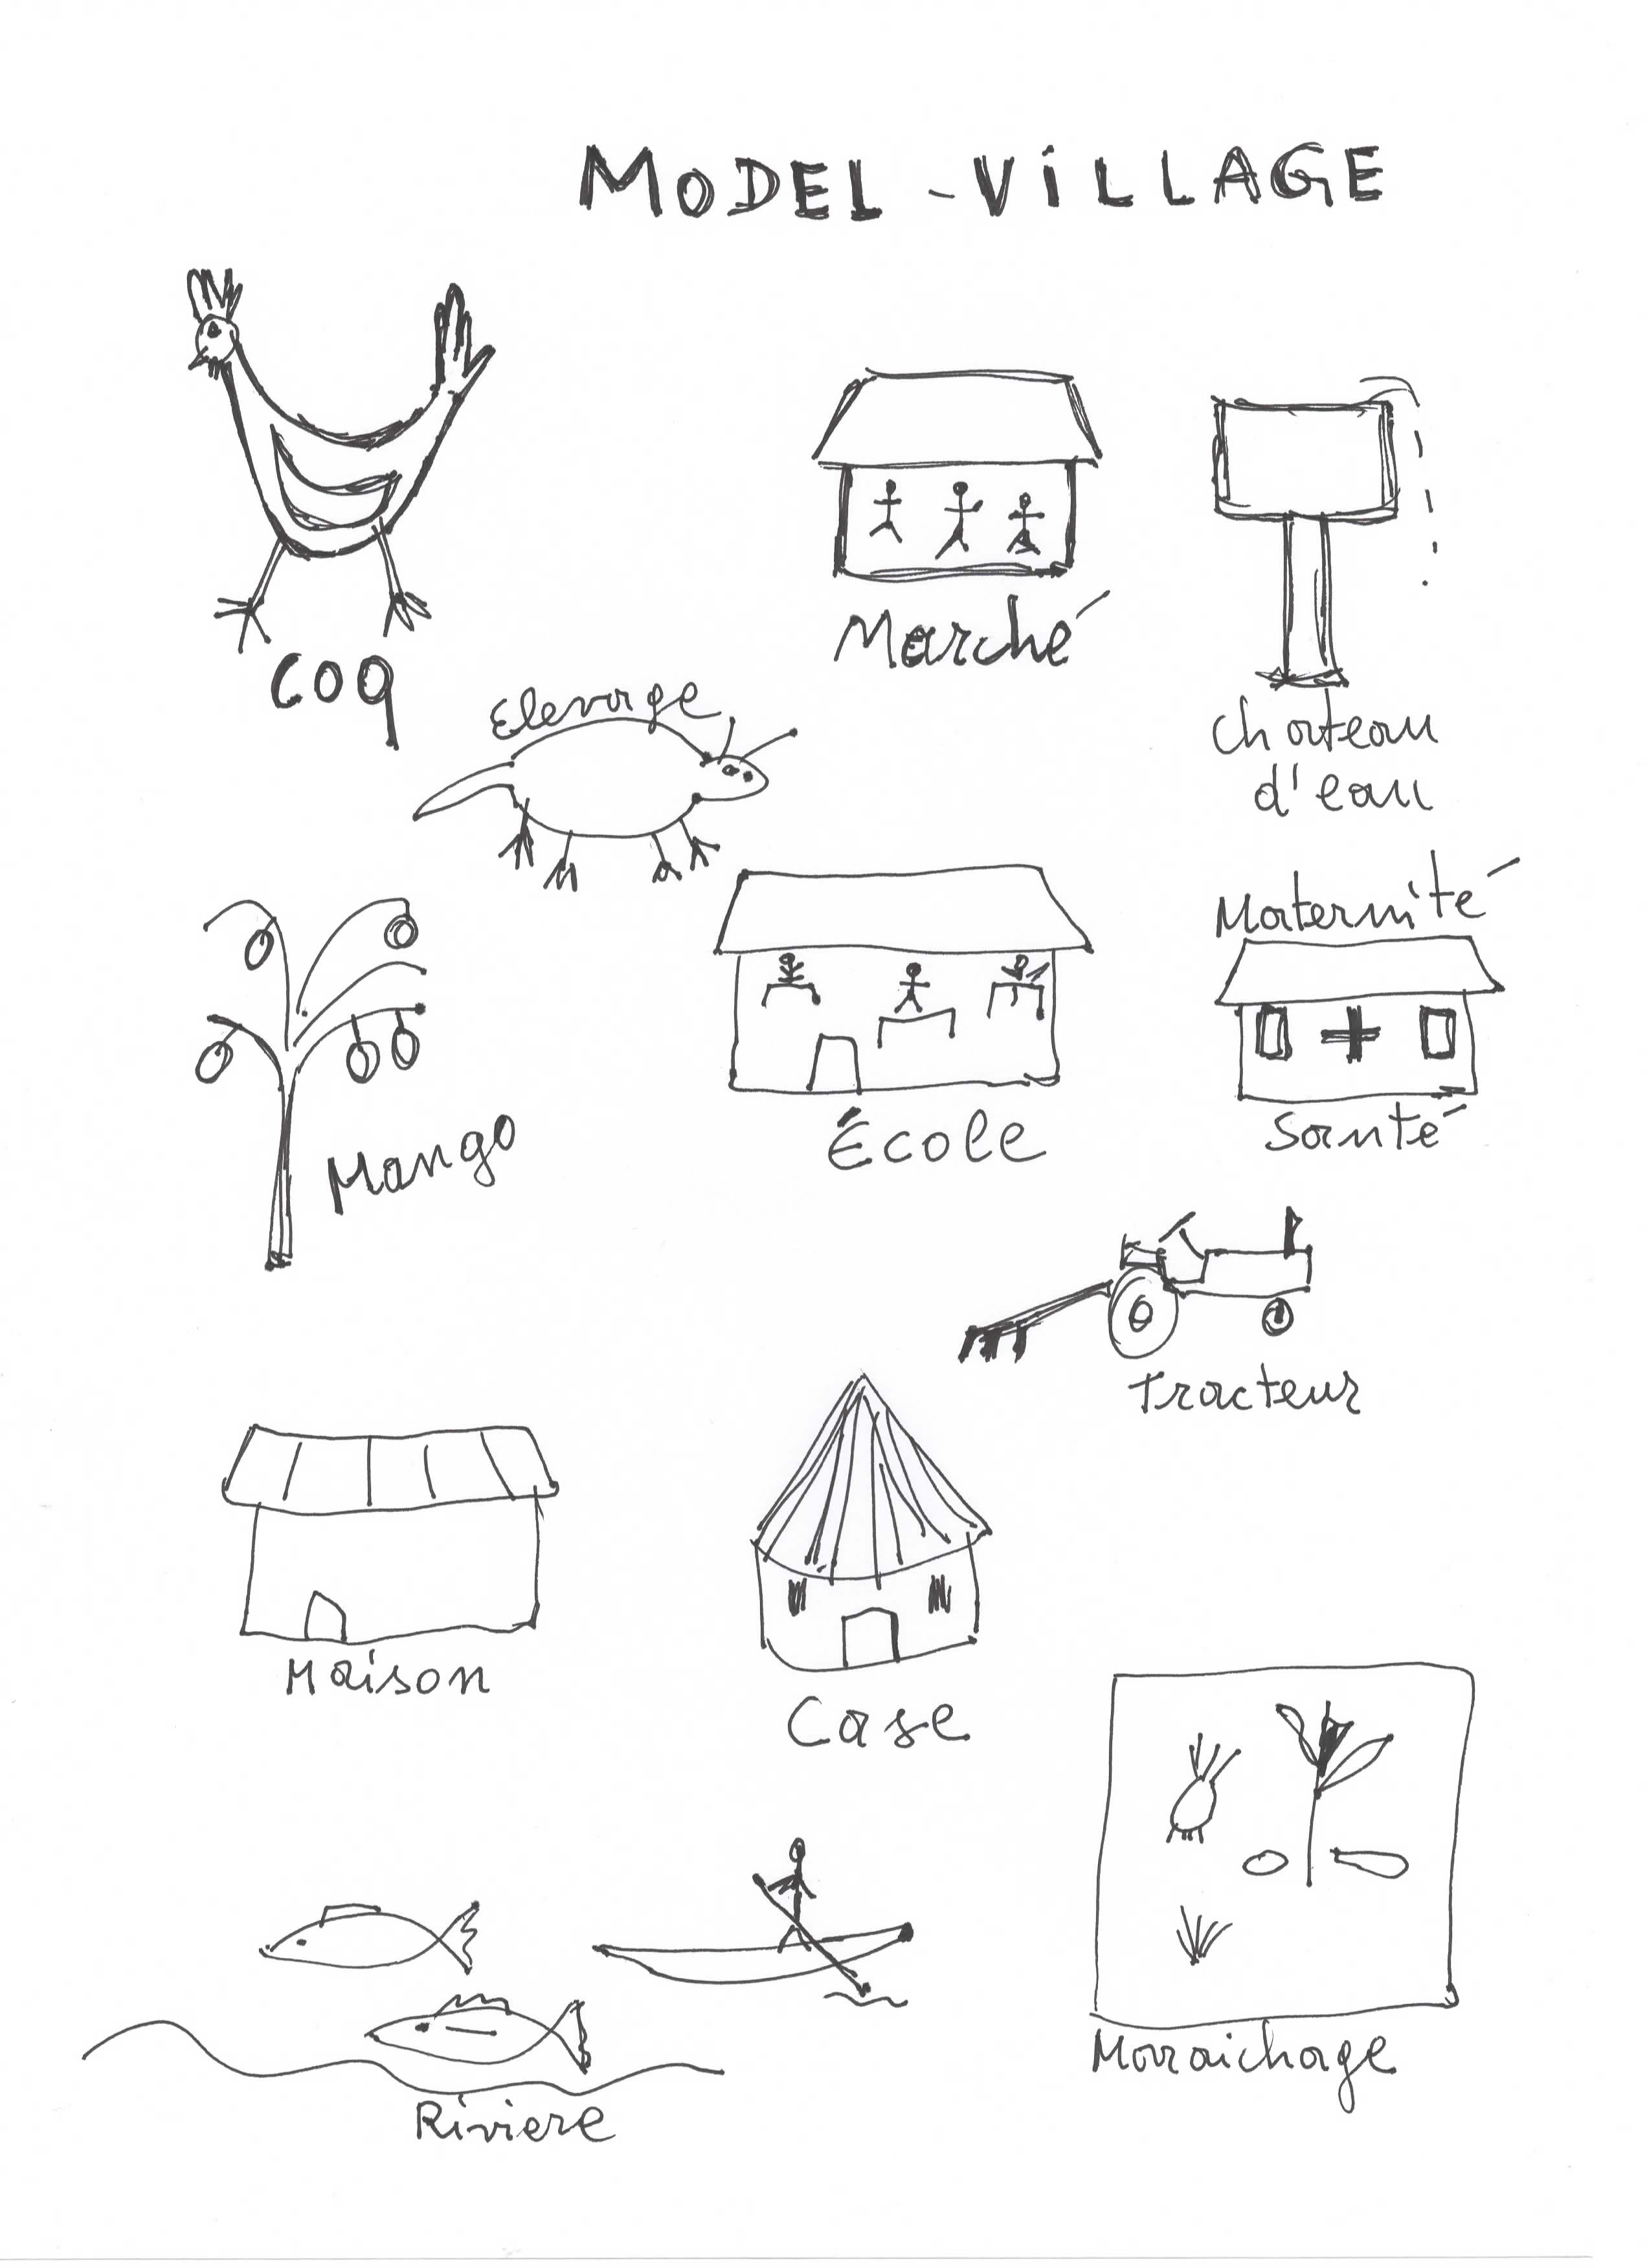 MODEL-ViLLAGE
COq
Marché
Elevage
Chateau
d'eau
Maternité
Mango
École
Santé
Tracteur
Maison
Case
Maraichage
Riviere